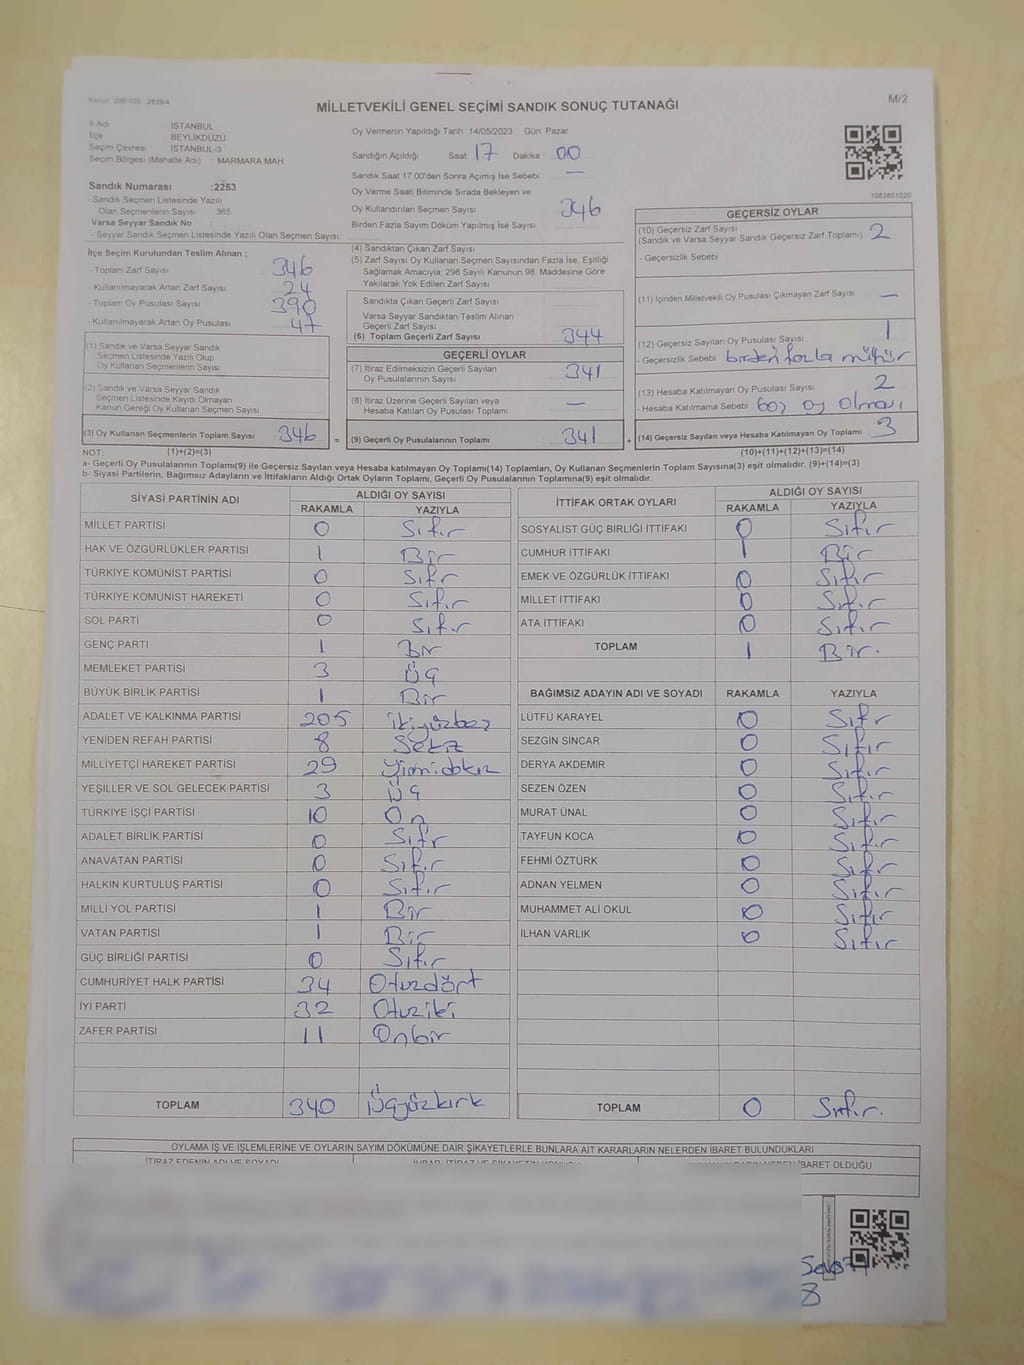 MİLLETVEKİLİ GENEL SEÇİMİ SANDIK SONUÇ TUTANAĞI
M/2
İl Adı İSTANBUL
İlçe BEYLİKDÜZÜ
Seçim Çevresi İSTANBUL-3
Seçim Bölgesi (Mahalle Adı) : MARMARA MAH
Sandık Numarası :2253
- Sandık Seçmen Listesinde Yazılı
Olan Seçmenlerin Sayısı : 365
Varsa Seyyar Sandık No
- Seyyar Sandık Seçmen Listesinde Yazılı Olan Seçmen Sayısı:
Oy Vermenin Yapıldığı Tarih :14/05/2023 Gün: Pazar
Sandığın Açıldığı Saat 17 Dakika 00
Sandık Saat 17:00'den Sonra Açımış İse Sebebi : —
Oy Verme Saati Bitiminde Sırada Bekleyen ve
Oy Kullandırılan Seçmen Sayısı 346
Birden Fazla Sayım Döküm Yapılmış İse Sayısı
1083851020
İlçe Seçim Kurulundan Teslim Alınan ;
- Toplam Zarf Sayısı 346
- Kullanılmayarak Artan Zarf Sayısı 24
- Toplam Oy Pusulası Sayısı 390
- Kullanılmayarak Artan Oy Pusulası 47
(1) Sandık ve Varsa Seyyar Sandık
Seçmen Listesinde Yazılı Olup
Oy Kullanan Seçmenlerin Sayısı
(2) Sandık ve Varsa Seyyar Sandık
Seçmen Listesinde Kayıtlı Olmayan
Kanun Gereği Oy Kullanan Seçmen Sayısı
(3) Oy Kullanan Seçmenlerin Toplam Sayısı 346 =
(4) Sandıktan Çıkan Zarf Sayısı
(5) Zarf Sayısı Oy Kullanan Seçmen Sayısından Fazla İse, Eşitliği
Sağlamak Amacıyla; 298 Sayılı Kanunun 98. Maddesine Göre
Yakılarak Yok Edilen Zarf Sayısı
Sandıkta Çıkan Geçerli Zarf Sayısı
Varsa Seyyar Sandıktan Teslim Alınan
Geçerli Zarf Sayısı
(6) Toplam Geçerli Zarf Sayısı 344
GEÇERLİ OYLAR
(7) İtiraz Edilmeksizin Geçerli Sayılan
Oy Pusulalarının Sayısı 341
(8) İtiraz Üzerine Geçerli Sayılan veya
Hesaba Katılan Oy Pusulası Toplamı —
(9) Geçerli Oy Pusulalarının Toplamı 341 +
GEÇERSİZ OYLAR
(10) Geçersiz Zarf Sayısı
(Sandık ve Varsa Seyyar Sandık Geçersiz Zarf Toplamı) 2
- Geçersizlik Sebebi
(11) İçinden Milletvekili Oy Pusulası Çıkmayan Zarf Sayısı —
(12) Geçersiz Sayılan Oy Pusulası Sayısı 1
- Geçersizlik Sebebi birden fazla mühür
(13) Hesaba Katılmayan Oy Pusulası Sayısı 2
- Hesaba Katılmama Sebebi boş oy olması
(14) Geçersiz Sayılan veya Hesaba Katılmayan Oy Toplamı 3
NOT: (1)+(2)=(3) (10)+(11)+(12)+(13)=(14)
a- Geçerli Oy Pusulalarının Toplamı(9) ile Geçersiz Sayılan veya Hesaba katılmayan Oy Toplamı(14) Toplamları, Oy Kullanan Seçmenlerin Toplam Sayısına(3) eşit olmalıdır. (9)+(14)=(3)
b- Siyasi Partilerin, Bağımsız Adayların ve İttifakların Aldığı Ortak Oyların Toplamı, Geçerli Oy Pusulalarının Toplamına(9) eşit olmalıdır.
SİYASİ PARTİNİN ADI ALDIĞI OY SAYISI
RAKAMLA YAZIYLA
MİLLET PARTİSİ 0 Sıfır
HAK VE ÖZGÜRLÜKLER PARTİSİ 1 Bir
TÜRKİYE KOMÜNİST PARTİSİ 0 Sıfır
TÜRKİYE KOMÜNİST HAREKETİ 0 Sıfır
SOL PARTİ 0 Sıfır
GENÇ PARTİ 1 Bir
MEMLEKET PARTİSİ 3 Üç
BÜYÜK BİRLİK PARTİSİ 1 Bir
ADALET VE KALKINMA PARTİSİ 205 ikiyüzbeş
YENİDEN REFAH PARTİSİ 8 Sekiz
MİLLİYETÇİ HAREKET PARTİSİ 29 Yirmidokuz
YEŞİLLER VE SOL GELECEK PARTİSİ 3 Üç
TÜRKİYE İŞÇİ PARTİSİ 10 On
ADALET BİRLİK PARTİSİ 0 Sıfır
ANAVATAN PARTİSİ 0 Sıfır
HALKIN KURTULUŞ PARTİSİ 0 Sıfır
MİLLİ YOL PARTİSİ 1 Bir
VATAN PARTİSİ 1 Bir
GÜÇ BİRLİĞİ PARTİSİ 0 Sıfır
CUMHURİYET HALK PARTİSİ 34 Otuzdört
İYİ PARTİ 32 Otuziki
ZAFER PARTİSİ 11 Onbir
TOPLAM 340 Üçyüzkırk
İTTİFAK ORTAK OYLARI ALDIĞI OY SAYISI
RAKAMLA YAZIYLA
SOSYALİST GÜÇ BİRLİĞİ İTTİFAKI 0 Sıfır
CUMHUR İTTİFAKI 1 Bir
EMEK VE ÖZGÜRLÜK İTTİFAKI 0 Sıfır
MİLLET İTTİFAKI 0 Sıfır
ATA İTTİFAKI 0 Sıfır
TOPLAM 1 Bir.
BAĞIMSIZ ADAYIN ADI VE SOYADI RAKAMLA YAZIYLA
LÜTFÜ KARAYEL 0 Sıfır
SEZGİN SİNCAR 0 Sıfır
DERYA AKDEMİR 0 Sıfır
SEZEN ÖZEN 0 Sıfır
MURAT ÜNAL 0 Sıfır
TAYFUN KOCA 0 Sıfır
FEHMİ ÖZTÜRK 0 Sıfır
ADNAN YELMEN 0 Sıfır
MUHAMMET ALİ OKUL 0 Sıfır
İLHAN VARLIK 0 Sıfır
TOPLAM 0 Sıfır.
OYLAMA İŞ VE İŞLEMLERİNE VE OYLARIN SAYIM DÖKÜMÜNE DAİR ŞİKAYETLERLE BUNLARA AİT KARARLARIN NELERDEN İBARET BULUNDUKLARI
İTİRAZ EDENİN ADI VE SOYADI İBARET OLDUĞU